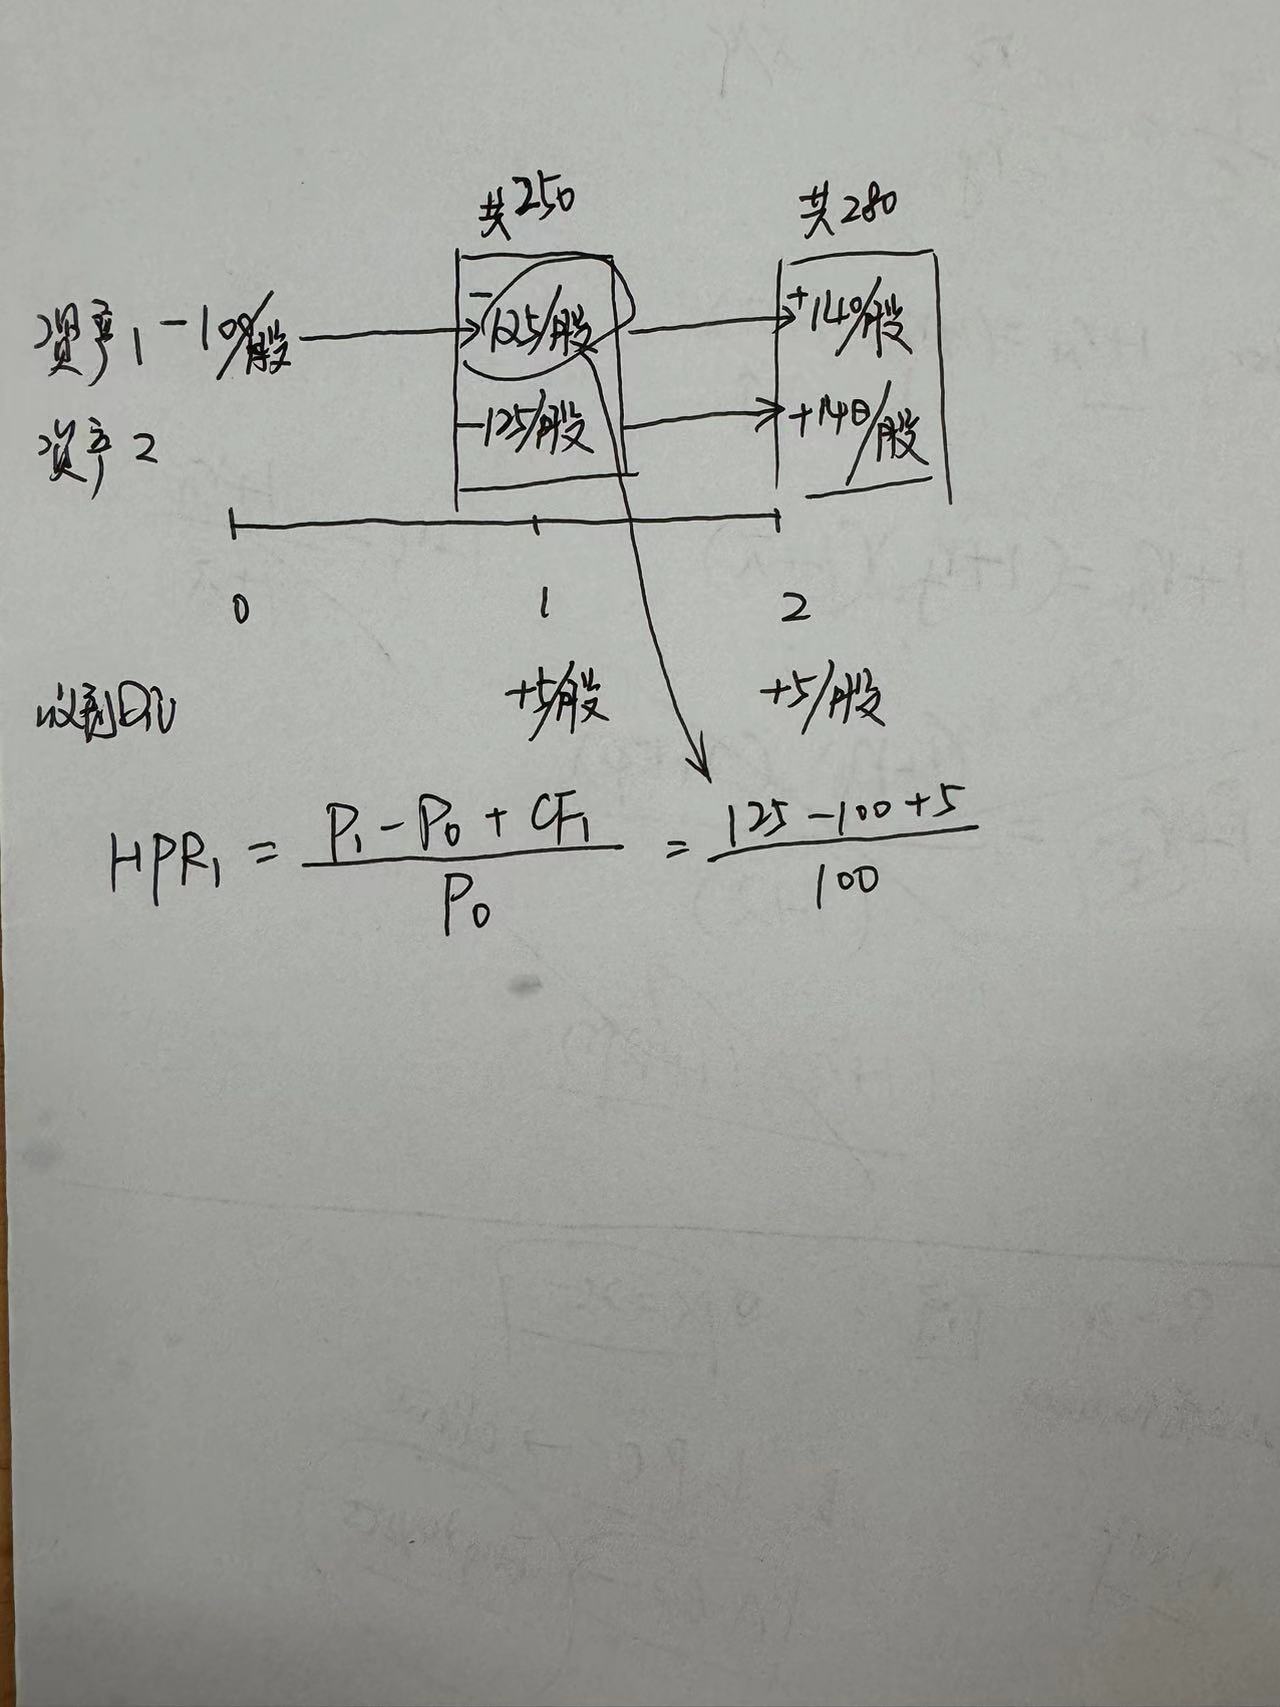 共250 共280
资产1 -100/股 -125/股 +140/股
资产2 -125/股 +140/股
0 1 2
收到DIV +5/股 +5/股
HPR₁ = (P₁ - P₀ + CF₁)/P₀ = (125 - 100 + 5)/100